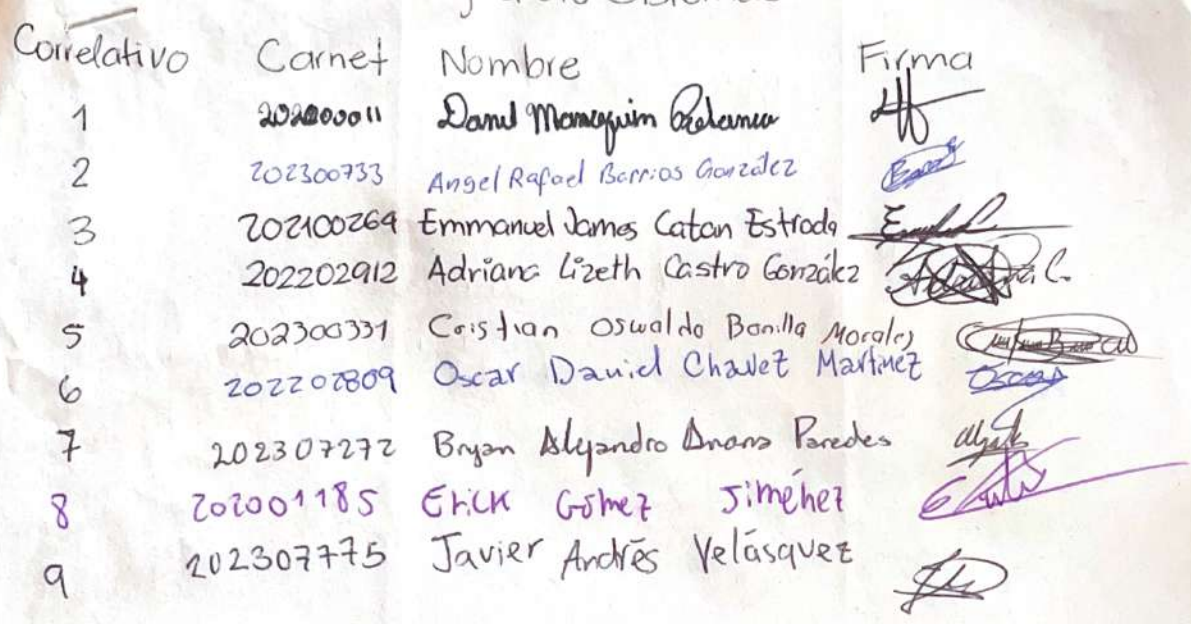 Correlativo Carnet Nombre Firma
1
2 202300733 Angel Rafael Barrios González
3 202100264 Emmanuel James Catan Estrada
4 202202912 Adriana Lizeth Castro González
5 202300331 Cristian Oswaldo Bonilla Morales
6 202202809 Oscar Daniel Chavez Martinez Oscar
7 202307272 Bryan Alejandro Paredes
8 202001185 Erick Gómez Jiménez
9 202307775 Javier Andrés Velásquez